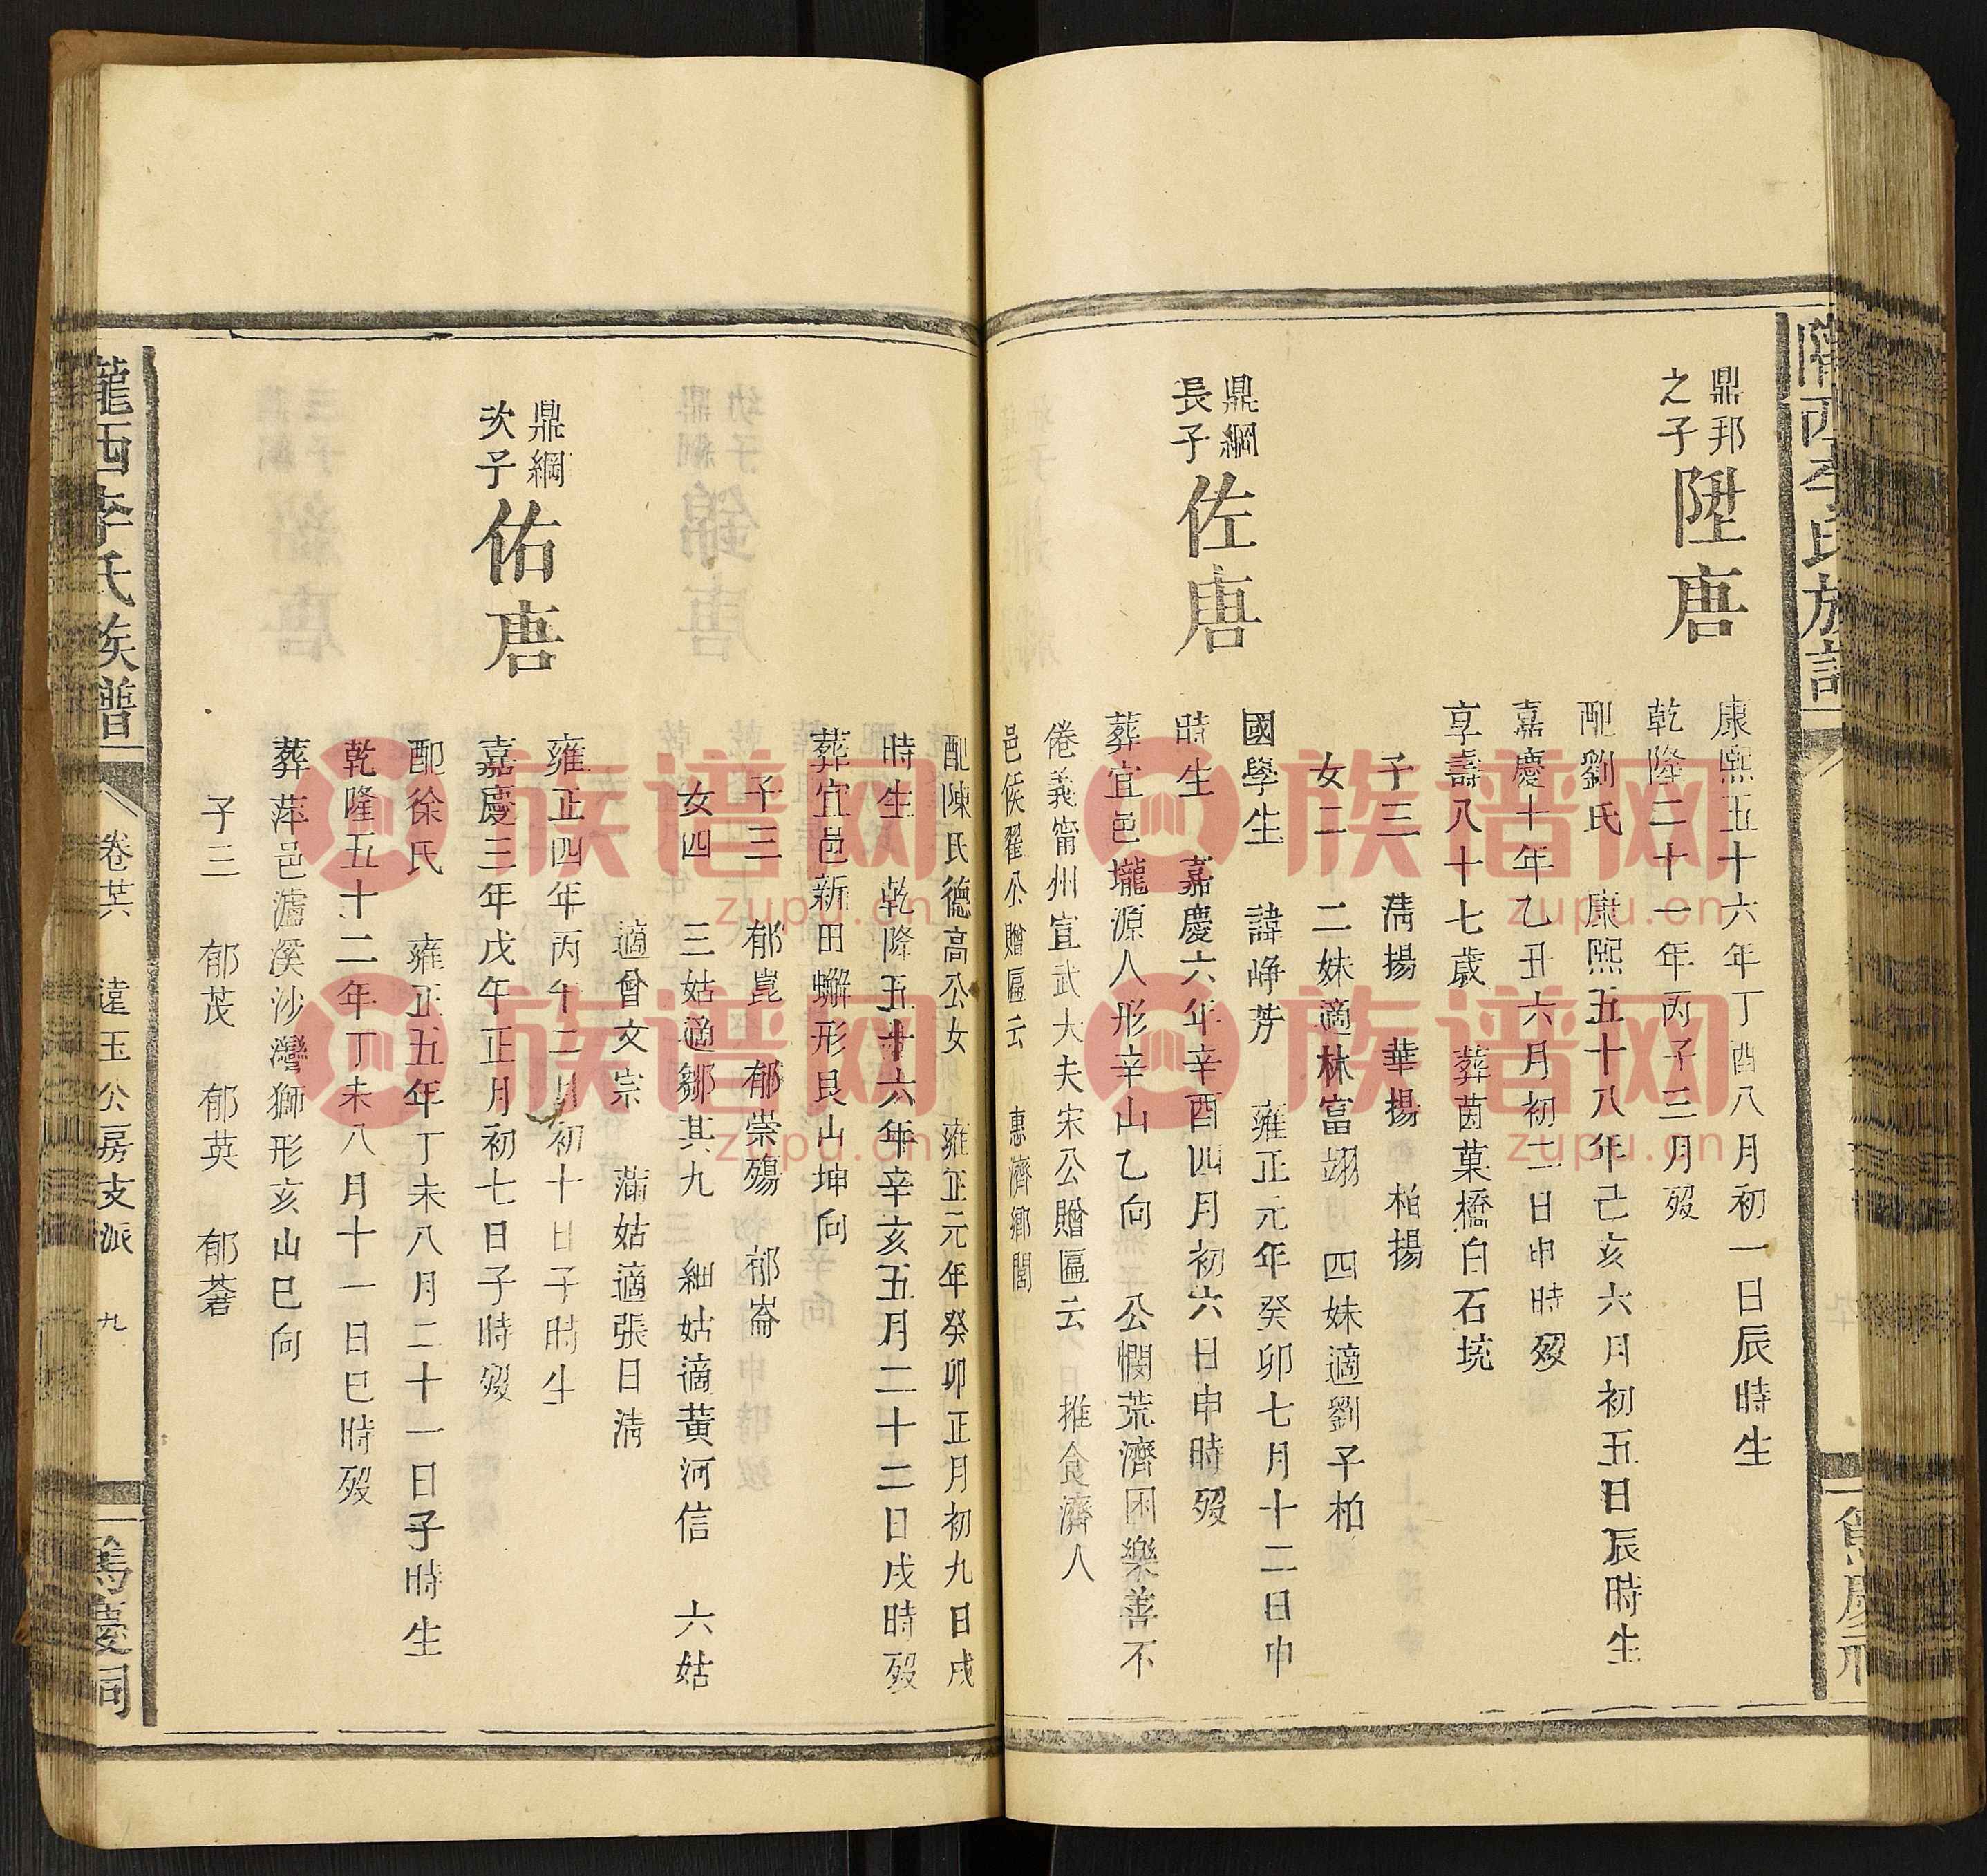 鼎邦
之子
陞唐
康熙五十六年丁酉八月初一日辰時生
乾隆二十一年丙子三月歿
配劉氏 康熙五十八年己亥六月初五日辰時生
嘉慶十年乙丑六月初二日申時歿
享壽八十七歲 葬茵菓橋白石坑
子三 淸揚 華揚 柏揚
女二 二妹適林富翊 四妹適劉子柏
鼎綱
長子
佐唐
國學生 諱崢芳 雍正元年癸卯七月十二日申
時生 嘉慶六年辛酉四月初六日申時歿
葬宜邑壠源人形辛山乙向 公憫荒濟困樂善不
倦義甯州宣武大夫宋公贈匾云 推食濟人
邑侯翟公贈匾云 惠濟鄉閭
配陳氏德高公女 雍正元年癸卯正月初九日戌
時生 乾隆五十六年辛亥五月二十二日戌時歿
葬宜邑新田蠏形艮山坤向
子三 郁崑 郁崇殤 郁崙
女四 三姑適鄒其九 細姑適黃河信 六姑
適曾文宗 滿姑適張日淸
鼎綱
次子
佑唐
雍正四年丙午二月初十日子時生
嘉慶三年戊午正月初七日子時歿
配徐氏 雍正五年丁未八月二十一日子時生
乾隆五十二年丁未八月十一日巳時歿
葬萍邑瀘溪沙灣獅形亥山巳向
子三 郁茂 郁英 郁蒼
隴西李氏族譜
卷共 遠玉公房支派 九
篤慶祠
族谱网
zupu.cn
族谱网
zupu.cn
族谱网
zupu.cn
族谱网
zupu.cn